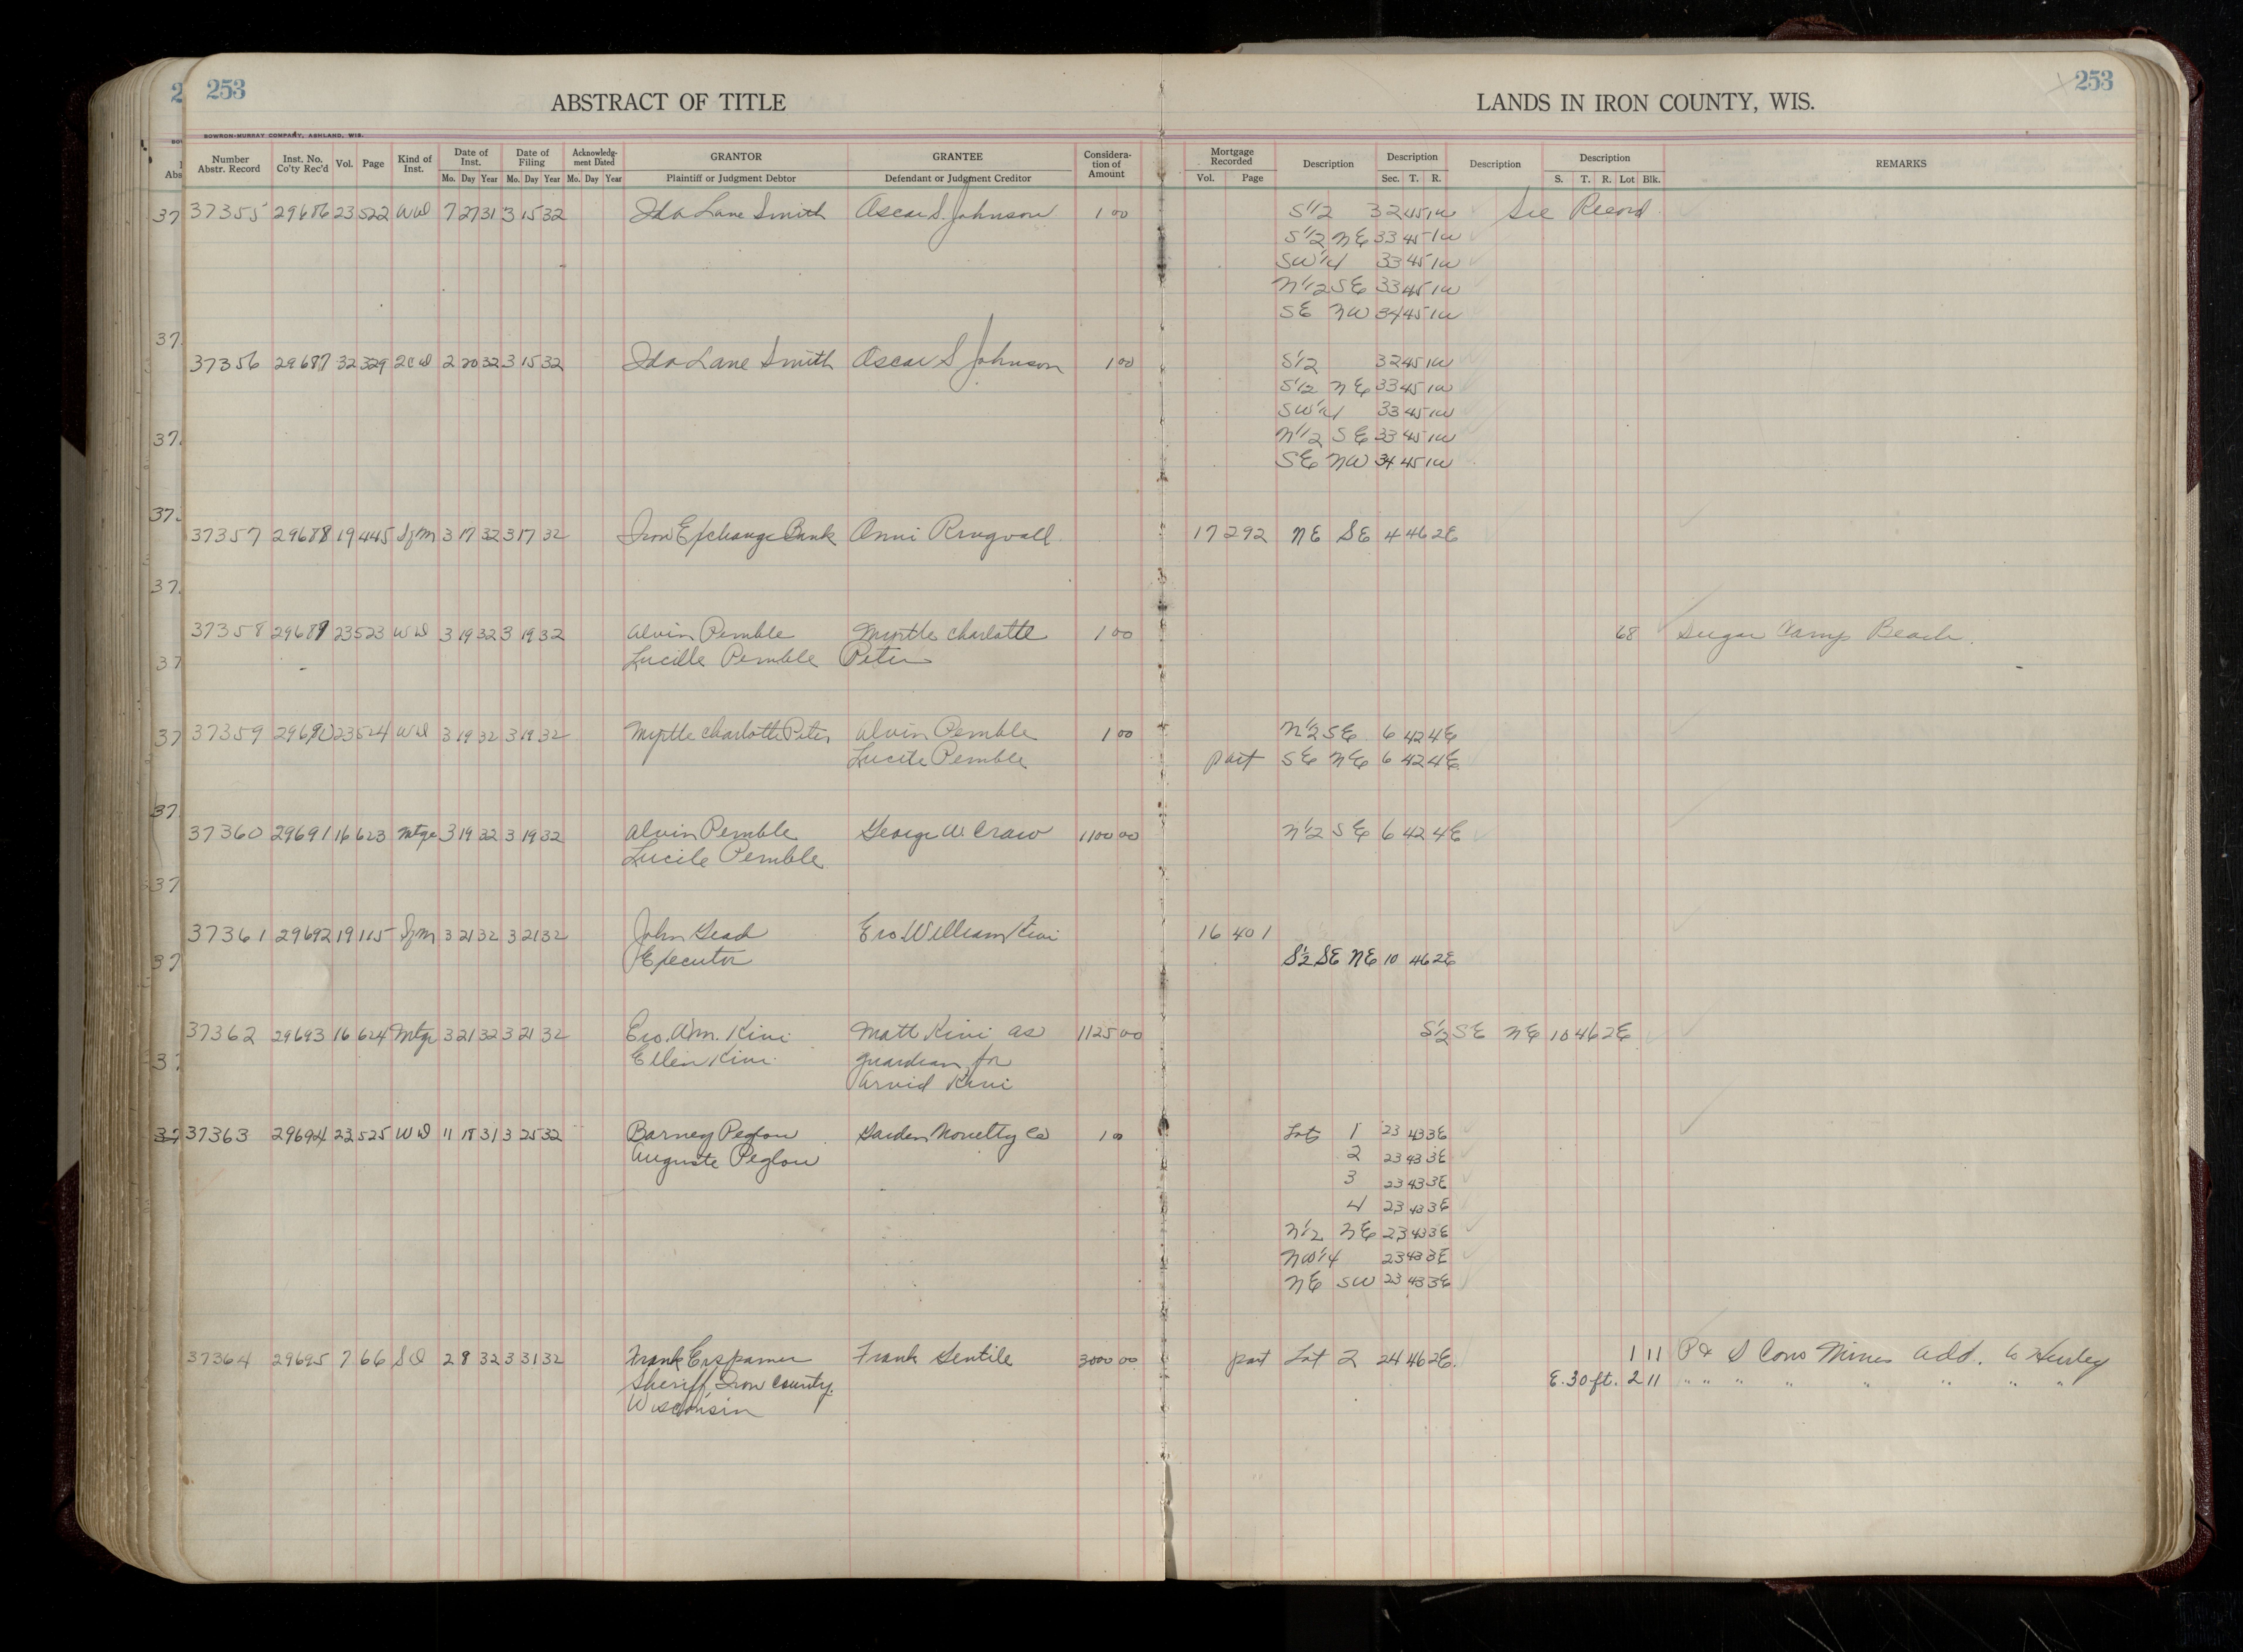 253
ABSTRACT OF TITLE
LANDS IN IRON COUNTY, WIS.
253
BOWRON-MURRAY COMPANY, ASHLAND, WIS.
Number Abstr. Record Inst. No. Co'ty Rec'd Vol. Page Kind of Inst. Date of Inst. Date of Filing Acknowledg-ment Dated GRANTOR GRANTEE Considera-tion of Amount Mortgage Recorded Description Description Description Description REMARKS
Mo. Day Year Mo. Day Year Mo. Day Year Plaintiff or Judgment Debtor Defendant or Judgment Creditor Vol. Page Sec. T. R. S. T. R. Lot Blk.
37355 29686 23 522 WD 7 27 31 3 15 32 Ida Lane Smith Oscar S. Johnson 1 00 S1/2 32 45 1W See Record
S1/2 NE 33 45 1W
SW1/4 33 45 1W
N1/2 SE 33 45 1W
SE NW 34 45 1W
37356 29687 32 329 2CD 2 20 32 3 15 32 Ida Lane Smith Oscar S Johnson 1 00 S1/2 32 45 1W
S1/2 NE 33 45 1W
SW1/4 33 45 1W
N1/2 SE 33 45 1W
SE NW 34 45 1W
37357 29688 19 445 Sfm 3 17 32 3 17 32 Iron Exchange Bank Anni Ringvall 17 292 NE SE 4 46 2E
37358 29689 23 523 WD 3 19 32 3 19 32 Alvin Pemble Myrtle Charlotte 1 00 68 Sugar Camp Beach.
Lucille Pemble Peter
37359 29690 23 524 WD 3 19 32 3 19 32 Myrtle Charlotte Peter Alvin Pemble 1 00 N1/2 SE 6 42 4E
Lucile Pemble part SE NE 6 42 4E
37360 29691 16 623 Mtge 3 19 32 3 19 32 Alvin Pemble George W. Craw 1100 00 N1/2 SE 6 42 4E
Lucile Pemble
37361 29692 19 115 Sfm 3 21 32 3 21 32 John Ero William Kivi 16 401
Executor S1/2 SE NE 10 46 2E
37362 29693 16 624 Mtge 3 21 32 3 21 32 Ero. Wm. Kivi Matt Kivi as 1125 00 S1/2 SE NE 10 46 2E
Ellen Kivi guardian for
Arvid Kivi
37363 29694 23 525 WD 11 18 31 3 25 32 Barney Peglow Garden Novelty Co 1 00 Lots 1 23 43 3E
Auguste Peglow 2 23 43 3E
3 23 43 3E
4 23 43 3E
N1/2 NE 23 43 3E
NW1/4 23 43 3E
NE SW 23 43 3E
37364 29695 7 66 SD 2 8 32 3 31 32 Frank Erspamer Frank Gentile 3000 00 part Lot 2 24 46 2E. 1 11 P & S Cons Mines Add. to Hurley
Sheriff, Iron County. E. 30 ft. 2 11 " " " " " " " "
Wisconsin